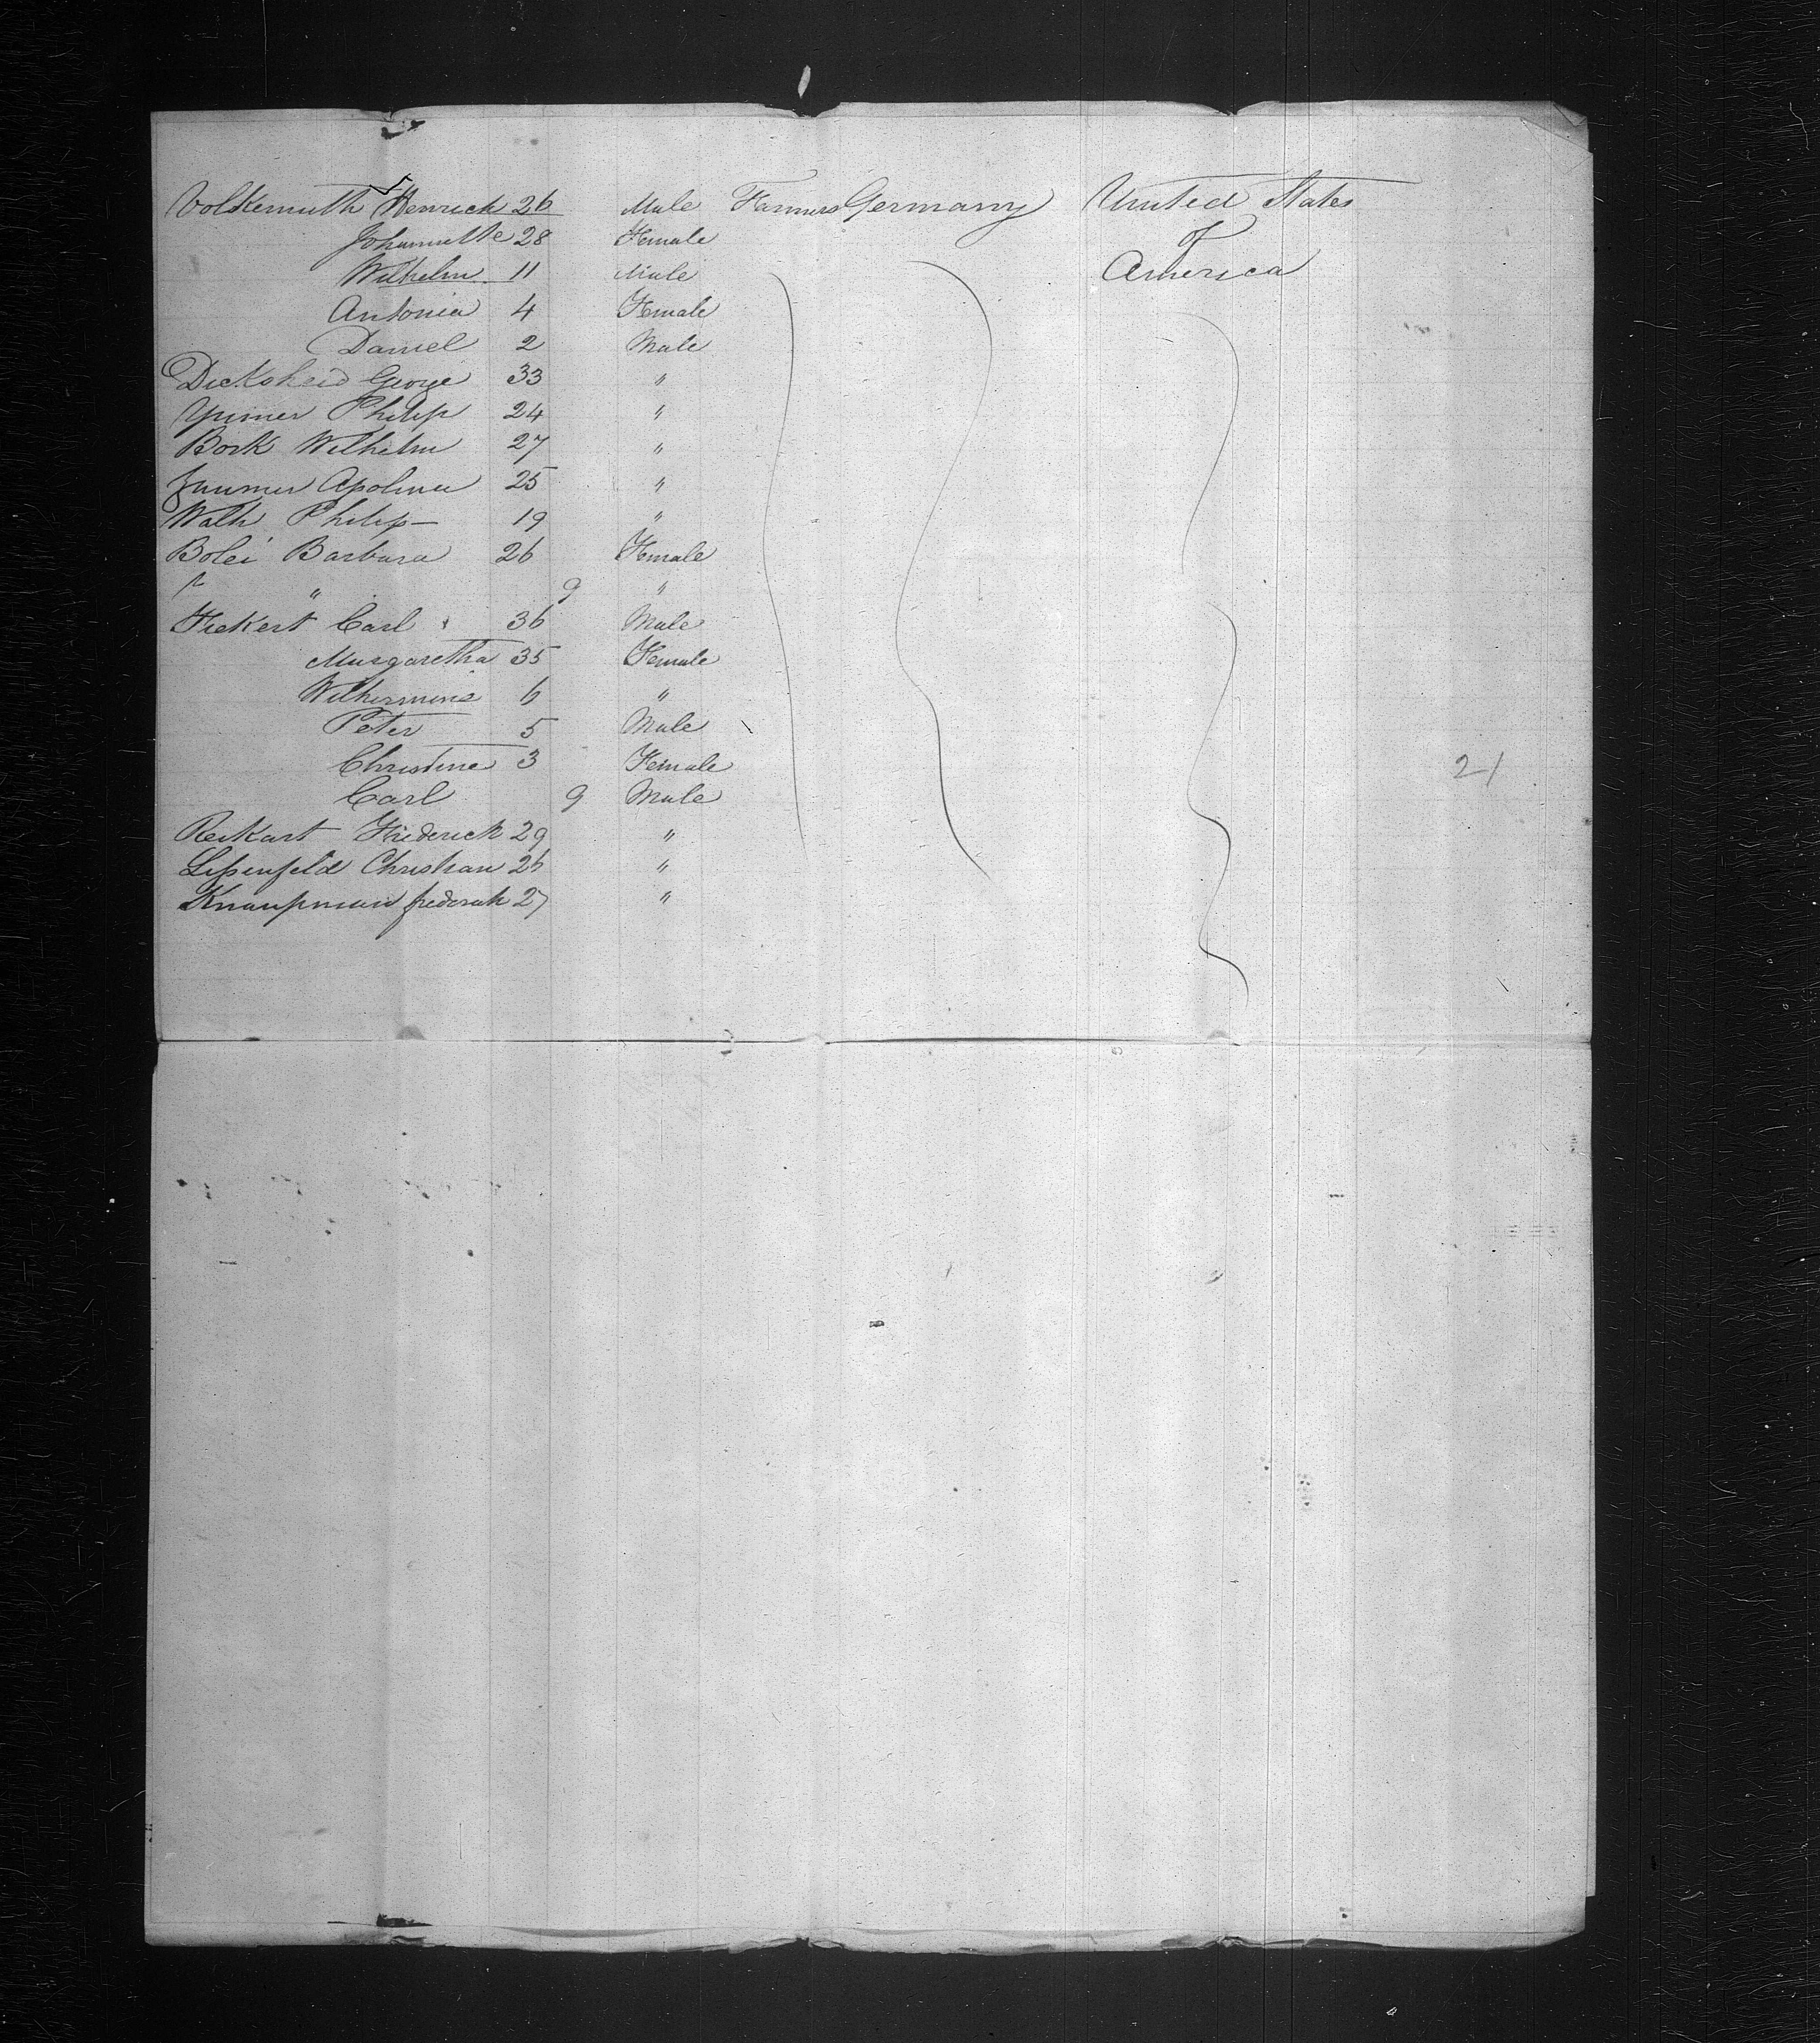 Volkemuth Henrich 26 Male Farmers Germany United States
Johannette 28 Female of
Wilhelm 11 Male America
Antonia 4 Female
Daniel 2 Male
Dicksheid George 33 "
Philip 24 "
Bork Wilhelm 27 "
Apolina 25 "
Walh Philip 19 "
Bolei Barbara 26 Female
" " 9 "
Fickert Carl 36 Male
Margaretha 35 Female
Wilhermine 6 "
Peter 5 Male
Christine 3 Female
21
Carl 9 Male
Reikart Friderich 29 "
Christian 26 "
Knaupman frederich 27 "